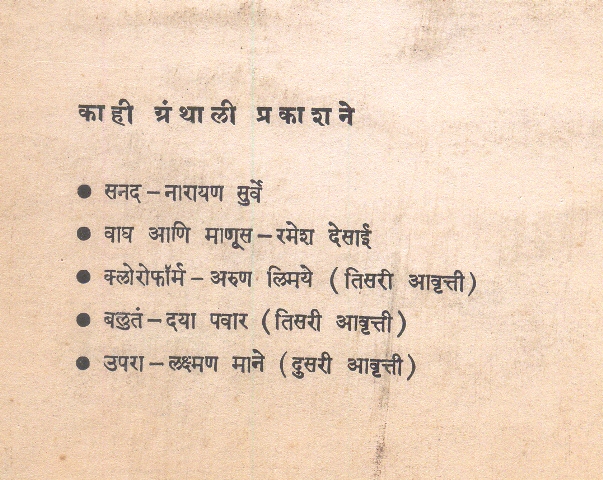 काही ग्रंथाली प्रकाशने
● सनद – नारायण सुर्वे
● वाघ आणि माणूस – रमेश देसाई
● क्लोरोफॉर्म – अरुण लिमये (तिसरी आवृत्ती)
● बलुतं – दया पवार (तिसरी आवृत्ती)
● उपरा – लक्ष्मण माने (दुसरी आवृत्ती)